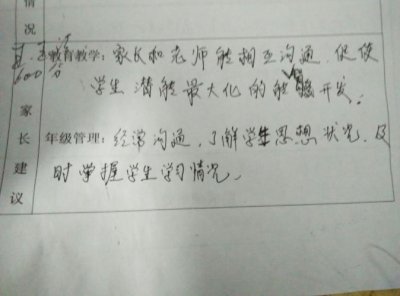 情
况
教育教学：家长和老师能相互沟通，促使
学生潜能最大化的能够开发。
家
长
建
议
年级管理：经常沟通，了解学生思想状况，及
时掌握学生学习情况。